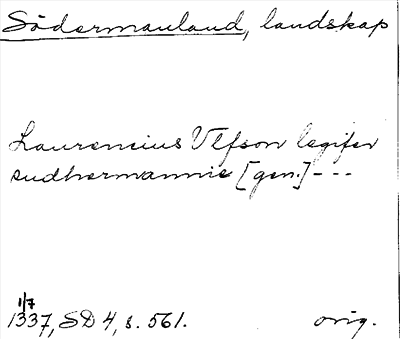 Södermanland, landskap
Laurencius Vlfson legifer
sudhermannie [gen.] - - -
1/7
1337, SD 4, s. 561. orig.